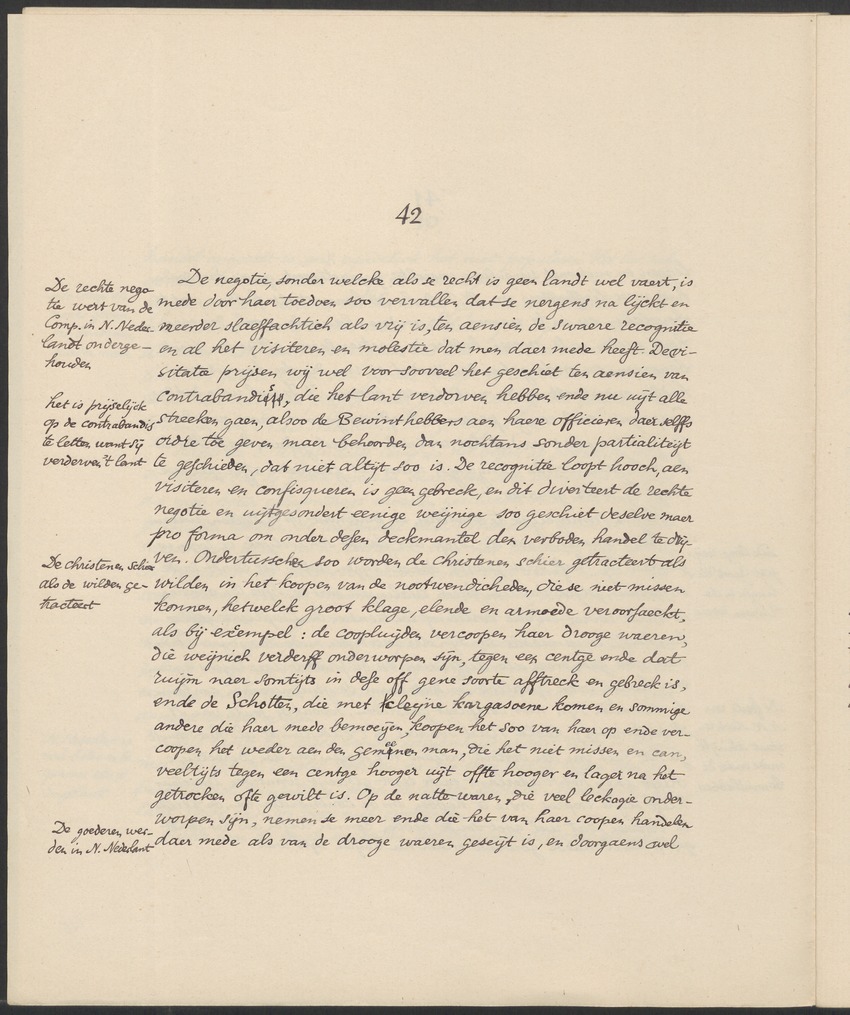 42
De rechte nego-
tie wert van de
Comp. in N. Neder-
landt onderge-
houden
het is prijselijck
op de contrabandiss
te letten want sij
verderven 't lant
De christenen schier
als de wilden ge-
tracteert
De goederen wer-
den in N. Nederlant
De negotie, sonder welcke als se recht is geen landt wel vaert, is
mede door haer toedoen soo vervallen dat se nergens na lijckt en
meerder slaeffachtich als vrij is, ten aensien de swaere recognitie
en al het visiteren en molestie dat men daer mede heeft. De vi-
sitatie prijsen wij wel voor sooveel het geschiet ten aensien van
contrabandiss, die het lant verdorven hebben ende nu uijt alle
streeken gaen, alsoo de Bewinthebbers aen haere officieren daer selffs
ordre toe geven maer behoorden dan nochtans sonder partialiteijt
te geschieden, dat niet altijt soo is. De recognitie loopt hooch, aen
visiteren en confisqueren is geen gebreck, en dit diverteert de rechte
negotie en uijtgesondert eenige weijnige soo geschiet deselve maer
pro forma om onder desen deckmantel den verboden handel te drij-
ven. Ondertusschen soo worden de christenen schier getracteert als
wilden in het koopen van de nootwendicheden, die se niet missen
konnen, hetwelck groot klage, elende en armoede veroorsaeckt,
als bij exempel: de coopluijden vercoopen haer drooge waeren,
die weijnich verderff onderworpen sijn, tegen een centge ende dat
ruijm naer somtijts in dese off gene soorte afftreck en gebreck is,
ende de Schotten, die met kleijne kargasoene komen en sommige
andere die haer mede bemoeijen, koopen het soo van haer op ende ver-
coopen het weder aen den gemeenen man, die het niet missen en can,
veeltijts tegen een centge hooger uijt offte hooger en lager na het
getrocken ofte gewilt is. Op de natte waren, die veel leckagie onder-
worpen sijn, nemen se meer ende die het van haer coopen handelen
daer mede als van de drooge waeren geseijt is, en doorgaens wel